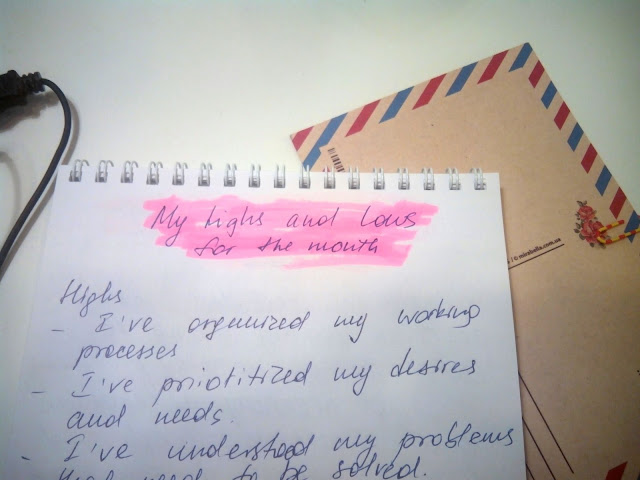 My highs and lows
for the month
Highs
- I've organized my working
processes
- I've prioritized my desires
and needs.
- I've understood my problems
that need to be solved.
© mirabella.com.ua